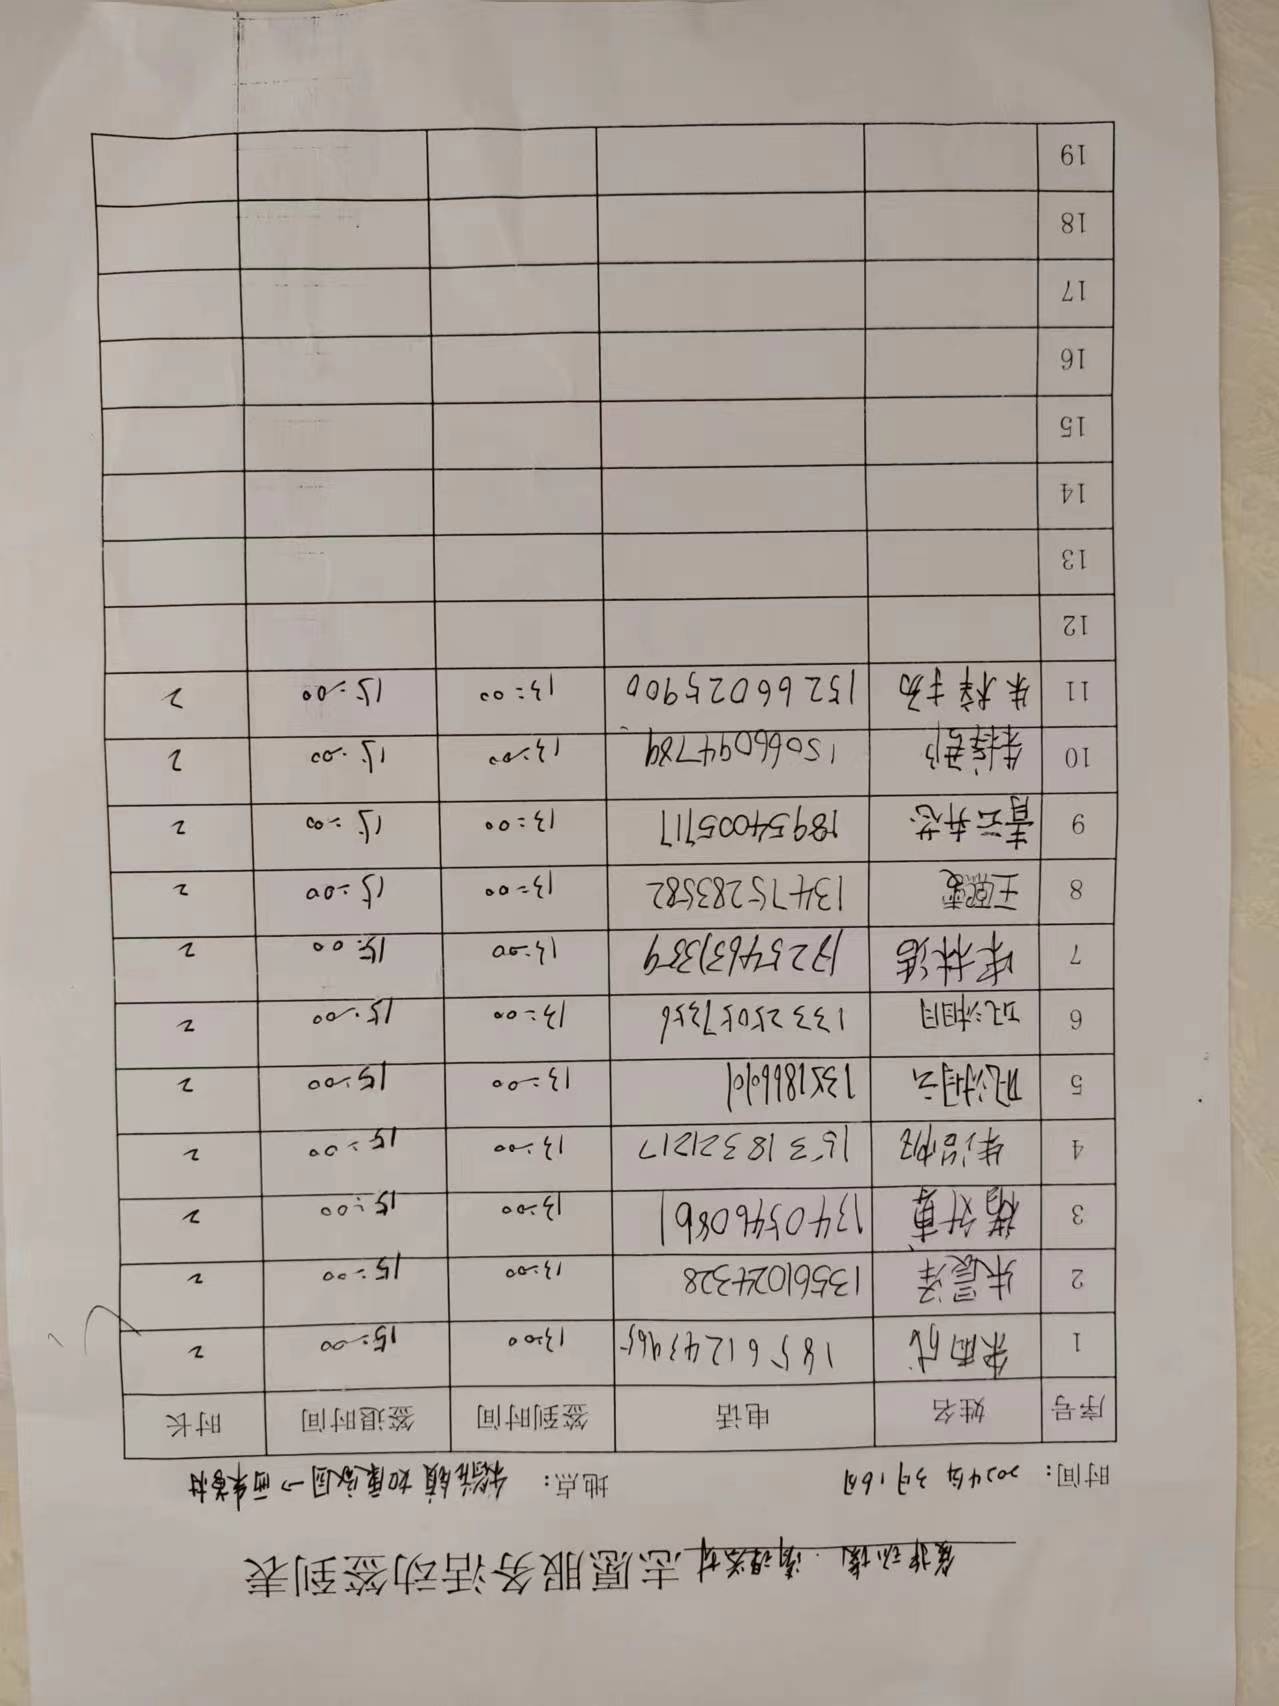 志愿服务活动签到表
时间：2024年3月16日 地点：
序号 姓名 电话 签到时间 签退时间 时长
1 宋雨成 18561243965 13:00 15:00 2
2 朱晨泽 13561024328 13:00 15:00 2
3 13405460861 13:00 15:00 2
4 15318321217 13:00 15:00 2
5 13:00 15:00 2
6 13325057356 13:00 15:00 2
7 宋林浩 13:00 15:00 2
8 王熙雯 13475283582 13:00 15:00 2
9 18954005717 13:00 15:00 2
10 15066094789 13:00 15:00 2
11 朱梓扬 15266025900 13:00 15:00 2
12
13
14
15
16
17
18
19